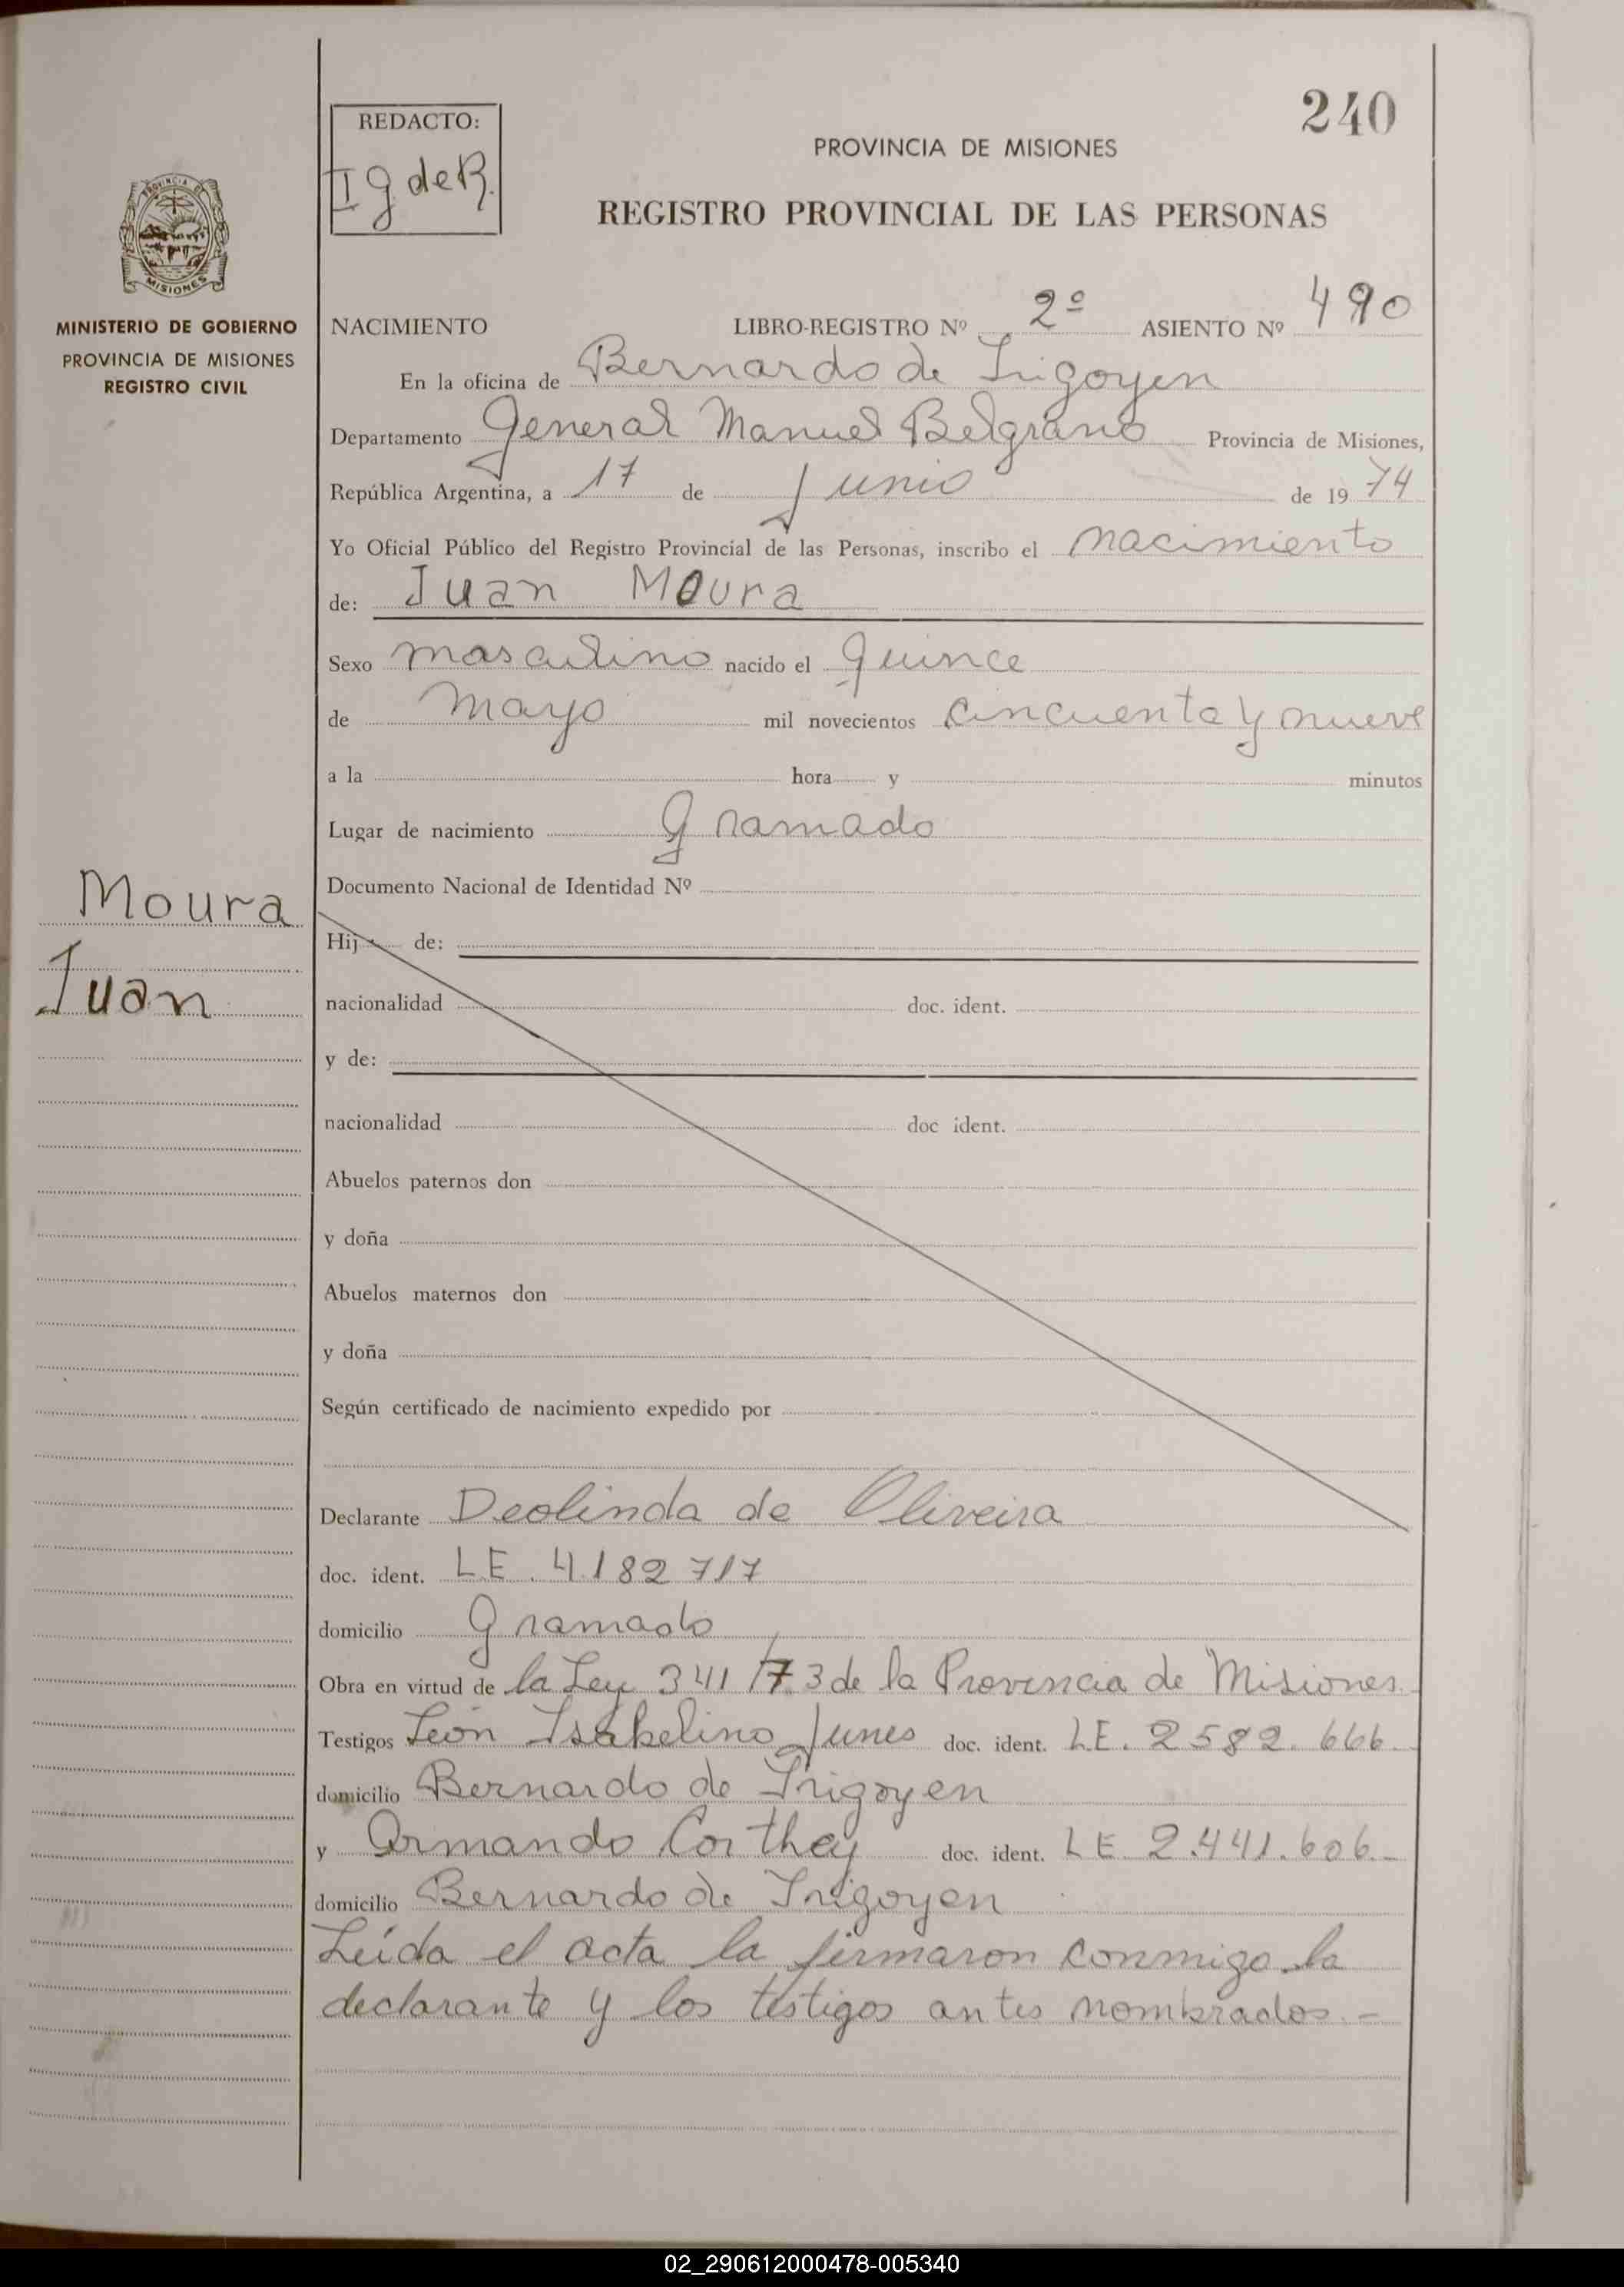 240
REDACTO:
Ig de R.
PROVINCIA DE MISIONES
REGISTRO PROVINCIAL DE LAS PERSONAS
PROVINCIA DE
MISIONES
MINISTERIO DE GOBIERNO
PROVINCIA DE MISIONES
REGISTRO CIVIL
NACIMIENTO LIBRO-REGISTRO Nº 2º ASIENTO Nº 490
En la oficina de Bernardo de Irigoyen
Departamento General Manuel Belgrano Provincia de Misiones,
República Argentina, a 17 de Junio de 1974
Yo Oficial Público del Registro Provincial de las Personas, inscribo el nacimiento
de: Juan Moura
Sexo masculino nacido el quince
de mayo mil novecientos cincuenta y nueve
a la hora y minutos
Lugar de nacimiento Gramado
Documento Nacional de Identidad Nº
Moura
Juan
Hij de:
nacionalidad doc. ident.
y de:
nacionalidad doc ident.
Abuelos paternos don
y doña
Abuelos maternos don
y doña
Según certificado de nacimiento expedido por
Declarante Deolinda de Oliveira
doc. ident. LE. 4182717
domicilio Gramado
Obra en virtud de la Ley 341/73 de la Provincia de Misiones.
Testigos León Isabelino Junes doc. ident. LE. 2582.666.
domicilio Bernardo de Irigoyen
y Armando Corthey doc. ident. LE 2.441.606.-
domicilio Bernardo de Irigoyen
Leída el acta la firmaron conmigo la
declarante y los testigos antes nombrados.-
02_290612000478-005340